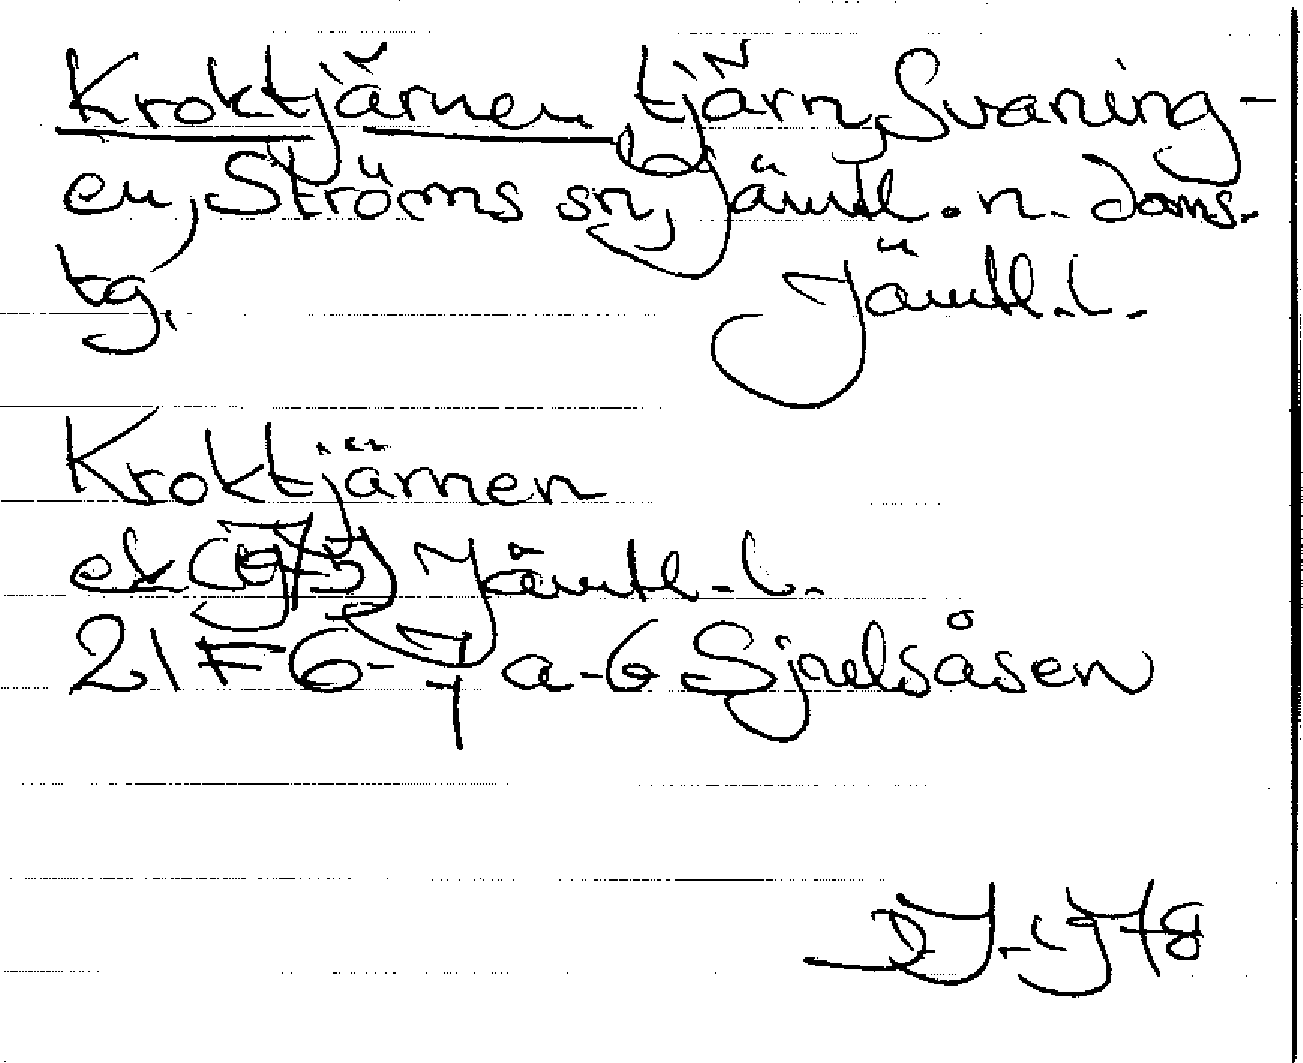 Kroktjärnen, tjärn, Svaning-
en, Ströms sn, Jämtl. n. doms.
tg. Jämtl. l.
Kroktjärnen
ek (1975) Jämtl. l.
21 F 6-7 a-b Sjoulsåsen